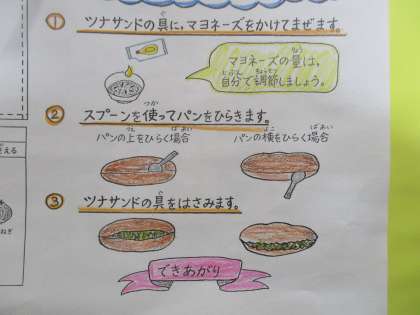 ① ツナサンドの具に、マヨネーズをかけてまぜます。
マヨネーズの量は、
自分で調節しましょう。
② スプーンを使ってパンをひらきます。
パンの上をひらく場合
パンの横をひらく場合
③ ツナサンドの具をはさみます。
できあがり